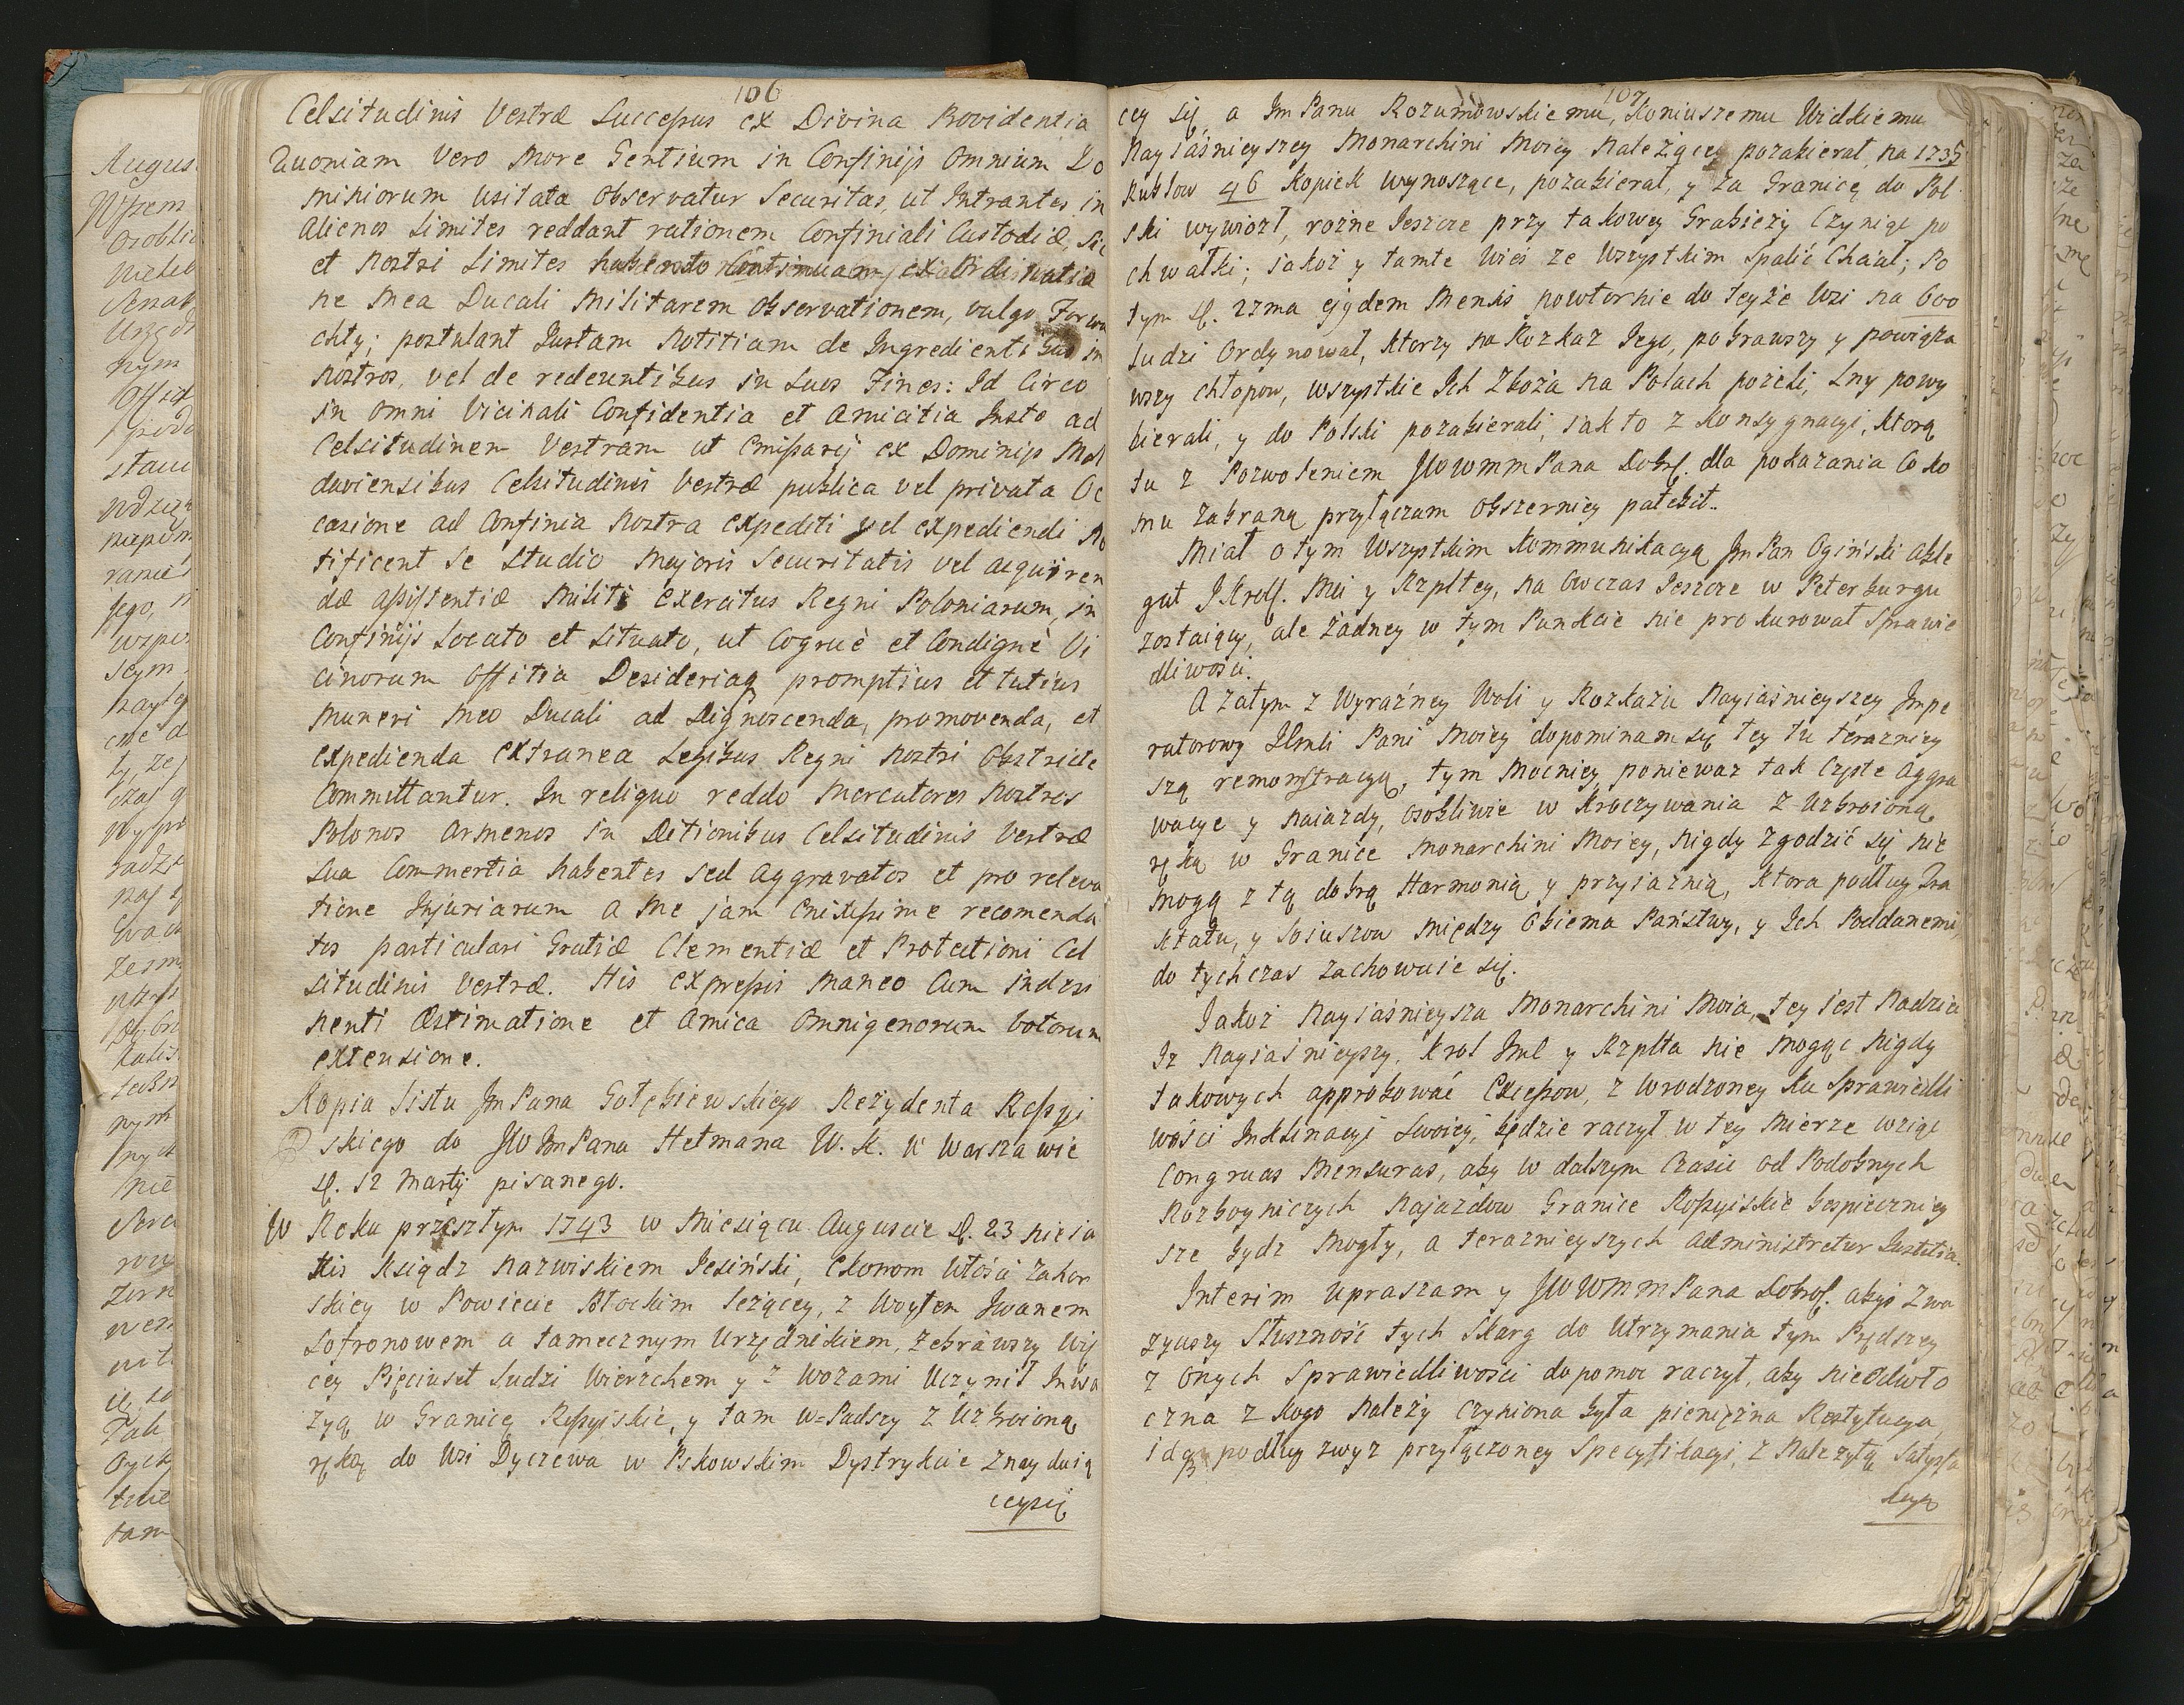 106
Celsitudinis Vestræ Successus ex Divina Providentia
Quoniam vero More Gentium in Confinijs Omnium Do
miniorum usitata observatur Securitas, ut Intrantes in
alienos Limites reddant rationem Confiniali Custodiæ, Sic
et Nostri Limites habendo Continuam ex Ordinatio
ne Mea Ducali Militarem observationem, vulgo Forwa
chty; postulant Justam Notitiam de Ingredientibus in
Nostros, vel de redeuntibus in Suos Fines: Id Circo
in omni Vicinali Confidentia et Amicitia Insto ad
Celsitudinem Vestram ut Emissarij ex Dominijs Mol
daviensibus Celsitudinis Vestræ publica vel privata Oc
casione ad Confinia Nostra expediti vel expediendi No
tificent se Studio Majoris Securitatis vel acquiren
dæ assistentiæ Militi Exercitus Regni Poloniarum, in
Confinijs Locato et Situato, ut Cogruè et Condignè Vi
cinorum Offitia Desideriaq promptius et tutius
Muneri Meo Ducali ad Dignoscenda, promovenda, et
expedienda extranea Legibus Regni Nostri Obstricte
Committantur. In reliquo reddo Mercatores Nostros
Polonos Armenos in Ditionibus Celsitudinis Vestræ
Sua Commertia habentes sed Aggravatos et pro releva
tione Injuriarum a Me jam Enixissime recomenda
tos particulari Gratiæ Clementiæ et Protectioni Cel
situdinis Vestræ. His expressis Maneo Cum indesi
nenti Æstimatione et Amica Omnigenorum Votorum
extensione.
Kopia Listu Jm Pana Gołębiewskiego Rezydenta Rossyi
skiego do JW Jm Pana Hetmana W. K. w Warszawie
d. 12 Martij pisanego.
W Roku przeszłym 1743 w Miesiącu Auguscie d. 23 nieia
kis Ksiądz Nazwiskiem Jesiński, Ekonom Włości Zahor
skiey w Powiecie Płockim leżącey, z Woytem Jwanem
Sofronowem a tamecznym Urzędnikiem, zebrawszy wię
cey Pięciuset Ludzi Wierzchem y z Wozami Uczynił Inwa
zyą w Granicę Rossyiskie, y tam w-Padszy z Uzbroioną
ręką do Wsi Dyczewa w Pskowskim Dystrykcie Znayduią
cey się
107
cey się, a Jm Panu Rozumowskiemu, Koniuszemu Wielkiemu
Nayiaśnieyszey Monarchini Moiey Należącey pozabierał na 1735
Rublow 46 Kopiek wynoszące, pozabierał, y za Granicę do Pol
ski wywiozł, rożne Jeszcze przy takowey Grabieży Czyniąc po
chwałki; jakoż y tamte Wieś ze Wszystkim Spalić Chciał; Po
tym d. 27ma ejusdem Mensis powtornie do teyże Wsi na 600
ludzi Ordynował, ktorzy na Rozkaz Jego, pobrawszy y powiąza
wszy chłopow, wszystkie Ich Zboża na Polach pożęli, Lny powy
bierali, y do Polski pozabierali, jak to z Konsygnacyi, ktorą
tu z Pozwoleniem JWWMM Pana Dobr. dla pokazania Co ko
mu Zabraną przyłączam Obszerniey
Miał o tym Wszystkim Kommunikacyą Jm Pan Ogiński able
gat J Krol. Mci y Rzpltey, na Owczas Jeszcze w Peterburgu
zostaiący, ale żadney w tym Punkcie nie prokurował Sprawie
dliwości.
A zatym z Wyraźney Woli y Rozkazu Nayiaśnieyszey Impe
ratorowy Jeymci Pani Moiey dopominam się tey tu teraznie
szą remonstracyą, tym Mocniey, poniewaz tak Częste Aggra
wacye y Naiazdy, osobliwie w kroczywania z Uzbroioną
ręką w Granice Monarchini Moiey, Nigdy zgodzić się nie
mogą z tą dobrą Harmonią y przyiaźnią, ktora podług Tra
ktatu, y Soiuszow między Obiema Państwy, y Ich Poddanemi,
do tychczas zachowuie się.
Jakoż Nayiaśnieysza Monarchini Moia, tey iest Nadziei
Iz Nayiaśnieyszy Krol Jmć y Rzplta nie mogąc Nigdy
takowych approbować Excessow, z Wrodzoney ku Sprawiedli
wości Inklinacyi Swoiey, będzie raczył w tey Mierze wziąć
Congruas Mensuras, aby w dalszym Czasie od Podobnych
Rozboyniczych Najazdow Granice Rossyiskie bespieczniey
sze bydz Mogły, a teraznieyszych administretur Justitia.
Interim Upraszam y JWWMM Pana Dobr. abyś Zwa
żywszy Słuszność tych Skarg do Utrzymania tym Prędszey
z Onych Sprawiedliwości dopomoc raczył, aby nieodwło
czna z kogo Należy czyniona była pieniężna Restytucya,
idq podług zwyż przyłączoney Specyfikacyi, z Należytą Satysfa
kcyą